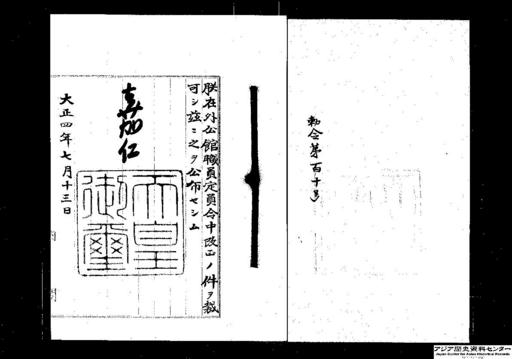 勅令第百十号
朕在外公館職員定員令中改正ノ件ヲ裁
可シ茲ニ之ヲ公布セシム
嘉仁
天皇
御璽
大正四年七月十三日
アジア歴史資料センター
Japan Center for Asian Historical Records